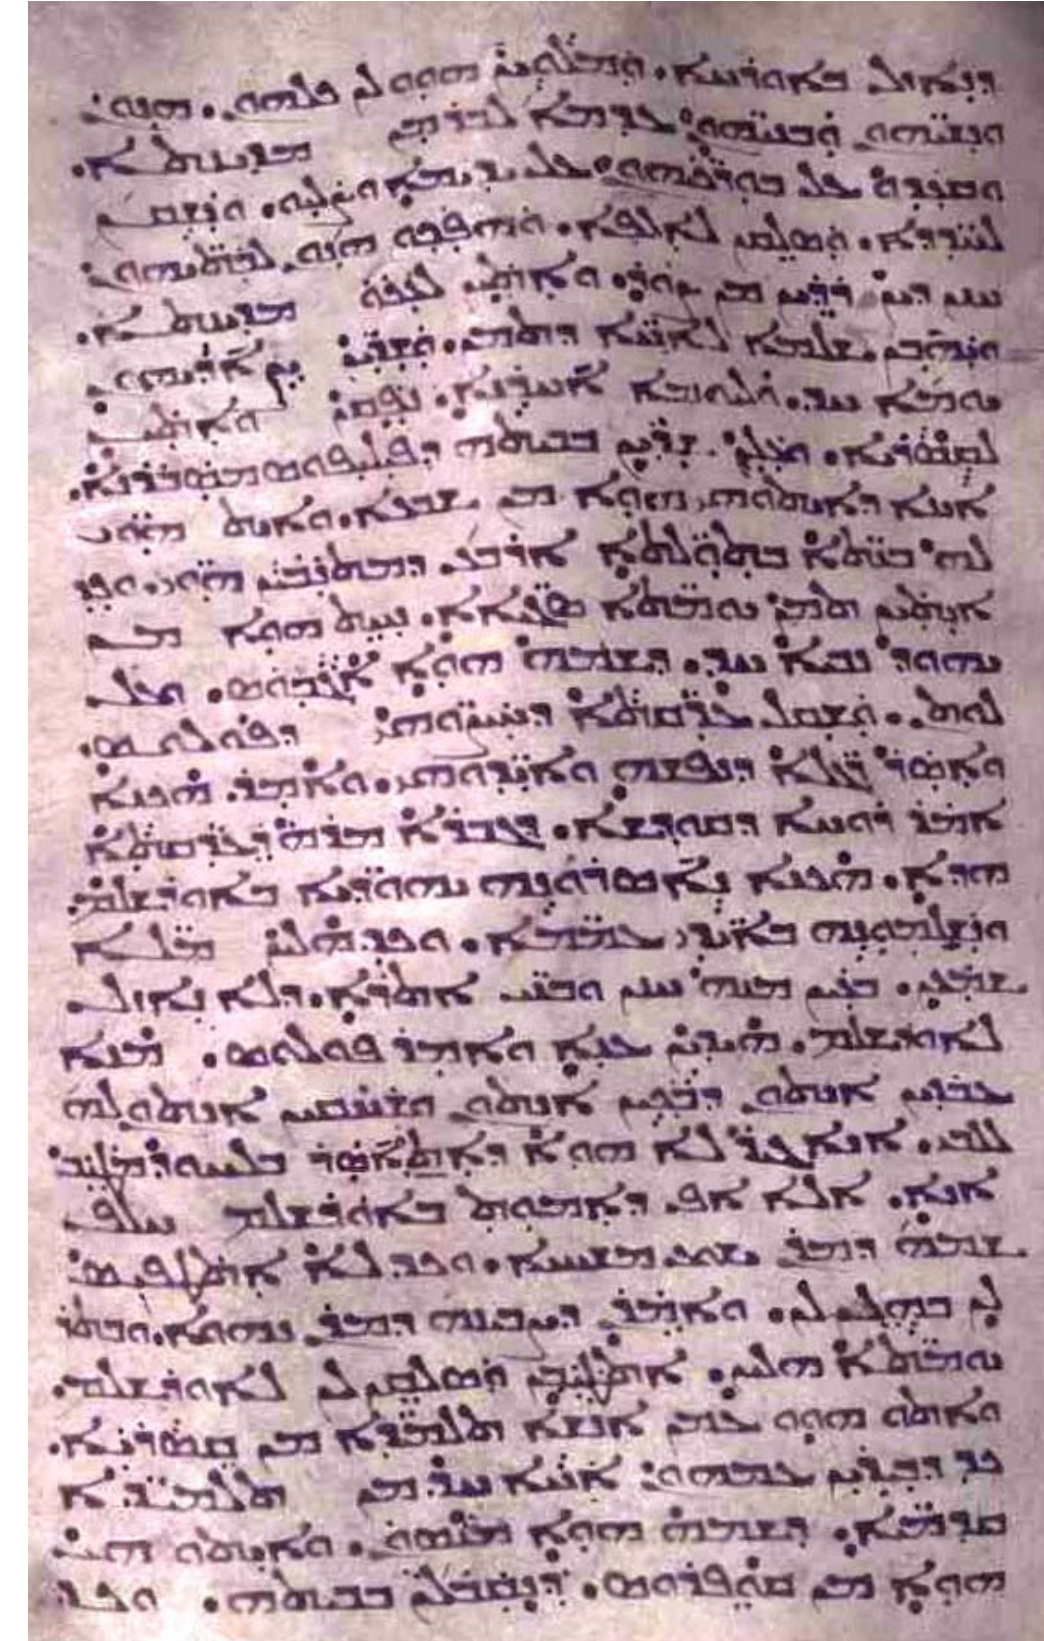 ܕܢܐܙܠ ܒܐܘܪܚܐ. ܘܡܠܘܝܢ ܗܘܘ ܠܢ ܟܠܗܘܢ. ܗܢܘܢ
ܘܢܫܝܗܘܢ ܘܒܢܝܗܘܢ ܥܕܡܐ ܠܒܪ ܡܢ ܡܕܝܢܬܐ.
ܘܒܪܟܘ ܥܠ ܒܘܪܟܝܗܘܢ ܥܠ ܝܕ ܝܡܐ ܘܨܠܝܘ. ܘܢܫܩܢ
ܠܚܕܕܐ. ܘܣܠܩܢ ܠܐܠܦܐ. ܘܗܦܟܘ ܗܢܘܢ ܠܒܬܝܗܘܢ
ܚܢܢ ܕܝܢ ܪܕܝܢ ܡܢ ܨܘܪ. ܘܐܬܝܢ ܠܥܟܘ ܡܕܝܢܬܐ.
ܘܝܗܒܢ ܫܠܡܐ ܠܐܚܐ ܕܬܡܢ. ܘܫܪܝܢ ܨܐܕܝܗܘܢ
ܝܘܡܐ ܚܕ. ܘܠܝܘܡܐ ܐܚܪܢܐ. ܢܦܩܢ ܘܐܬܝܢ
ܠܩܣܪܝܐ. ܘܥܠܢ ܫܪܝܢ ܒܒܝܬܗ ܕܦܝܠܝܦܘܣ ܡܣܒܪܢܐ.
ܐܝܢܐ ܕܐܝܬܘܗܝ ܗܘܐ ܡܢ ܫܒܥܐ. ܘܐܝܬ ܗܘܝ
ܠܗ ܒܢܬܐ ܒܬܘܠܬܐ ܐܪܒܥ ܕܡܬܢܒܝܢ ܗܘܝ. ܘܟܕ
ܐܝܬܝܢ ܬܡܢ ܝܘܡܬܐ ܣܓܝܐܐ. ܢܚܬ ܗܘܐ ܡܢ
ܝܗܘܕ ܢܒܝܐ ܚܕ. ܕܫܡܗ ܗܘܐ ܐܓܒܘܣ. ܘܥܠ
ܠܘܬܢ. ܘܫܩܠ ܥܪܩܬܐ ܕܚܨܘܗܝ ܕܦܘܠܘܣ.
ܘܐܣܪ ܪܓܠܐ ܕܢܦܫܗ ܘܐܝܕܘܗܝ. ܘܐܡܪ. ܗܟܢܐ
ܐܡܪ ܪܘܚܐ ܕܩܘܕܫܐ. ܕܓܒܪܐ ܡܪܗ ܕܥܪܩܬܐ
ܗܕܐ. ܗܟܢܐ ܢܐܣܪܘܢܝܗܝ ܝܗܘܕܝܐ ܒܐܘܪܫܠܡ.
ܘܢܫܠܡܘܢܝܗܝ ܒܐܝܕܝ ܥܡܡܐ. ܘܟܕ ܗܠܝܢ ܡܠܐ
ܫܡܥܢ. ܒܥܝܢ ܡܢܗ ܚܢܢ ܘܒܢܝ ܐܬܪܐ. ܕܠܐ ܢܐܙܠ
ܠܐܘܪܫܠܡ. ܗܝܕܝܢ ܥܢܐ ܘܐܡܪ ܦܘܠܘܣ. ܡܢܐ
ܥܒܕܝܢ ܐܢܬܘܢ ܕܒܟܝܢ ܐܢܬܘܢ ܘܫܚܩܝܢ ܐܢܬܘܢ ܠܗ
ܠܠܒܝ. ܐܢܐ ܓܝܪ ܠܐ ܗܘܐ ܕܐܬܐܣܪ ܒܠܚܘܕ ܡܛܝܒ
ܐܢܐ. ܐܠܐ ܐܦ ܕܐܡܘܬ ܒܐܘܪܫܠܡ ܚܠܦ
ܫܡܗ ܕܡܪܢ ܝܫܘܥ ܡܫܝܚܐ. ܘܟܕ ܠܐ ܐܬܛܦܝܣ
ܠܢ ܠܢ. ܘܐܡܪܢ ܕܨܒܝܢܗ ܕܡܪܢ ܢܗܘܐ. ܘܒܬܪ
ܝܘܡܬܐ ܗܠܝܢ. ܐܬܛܝܒܢ ܘܣܠܩܢ ܠܢ ܠܐܘܪܫܠܡ.
ܘܐܬܘ ܗܘܘ ܥܡܢ ܐܢܫܐ ܬܠܡܝܕܐ ܡܢ ܩܣܪܝܐ.
ܟܕ ܕܒܝܪܝܢ ܥܡܗܘܢ ܐܚܐ ܚܕ ܡܢ ܬܠܡܝܕܐ
ܩܕܡܝܐ. ܕܫܡܗ ܗܘܐ ܡܢܣܘܢ. ܘܐܝܬܘܗܝ
ܗܘܐ ܡܢ ܩܘܦܪܘܣ. ܕܢܩܒܠܢ ܒܒܝܬܗ. ܘܟܕ